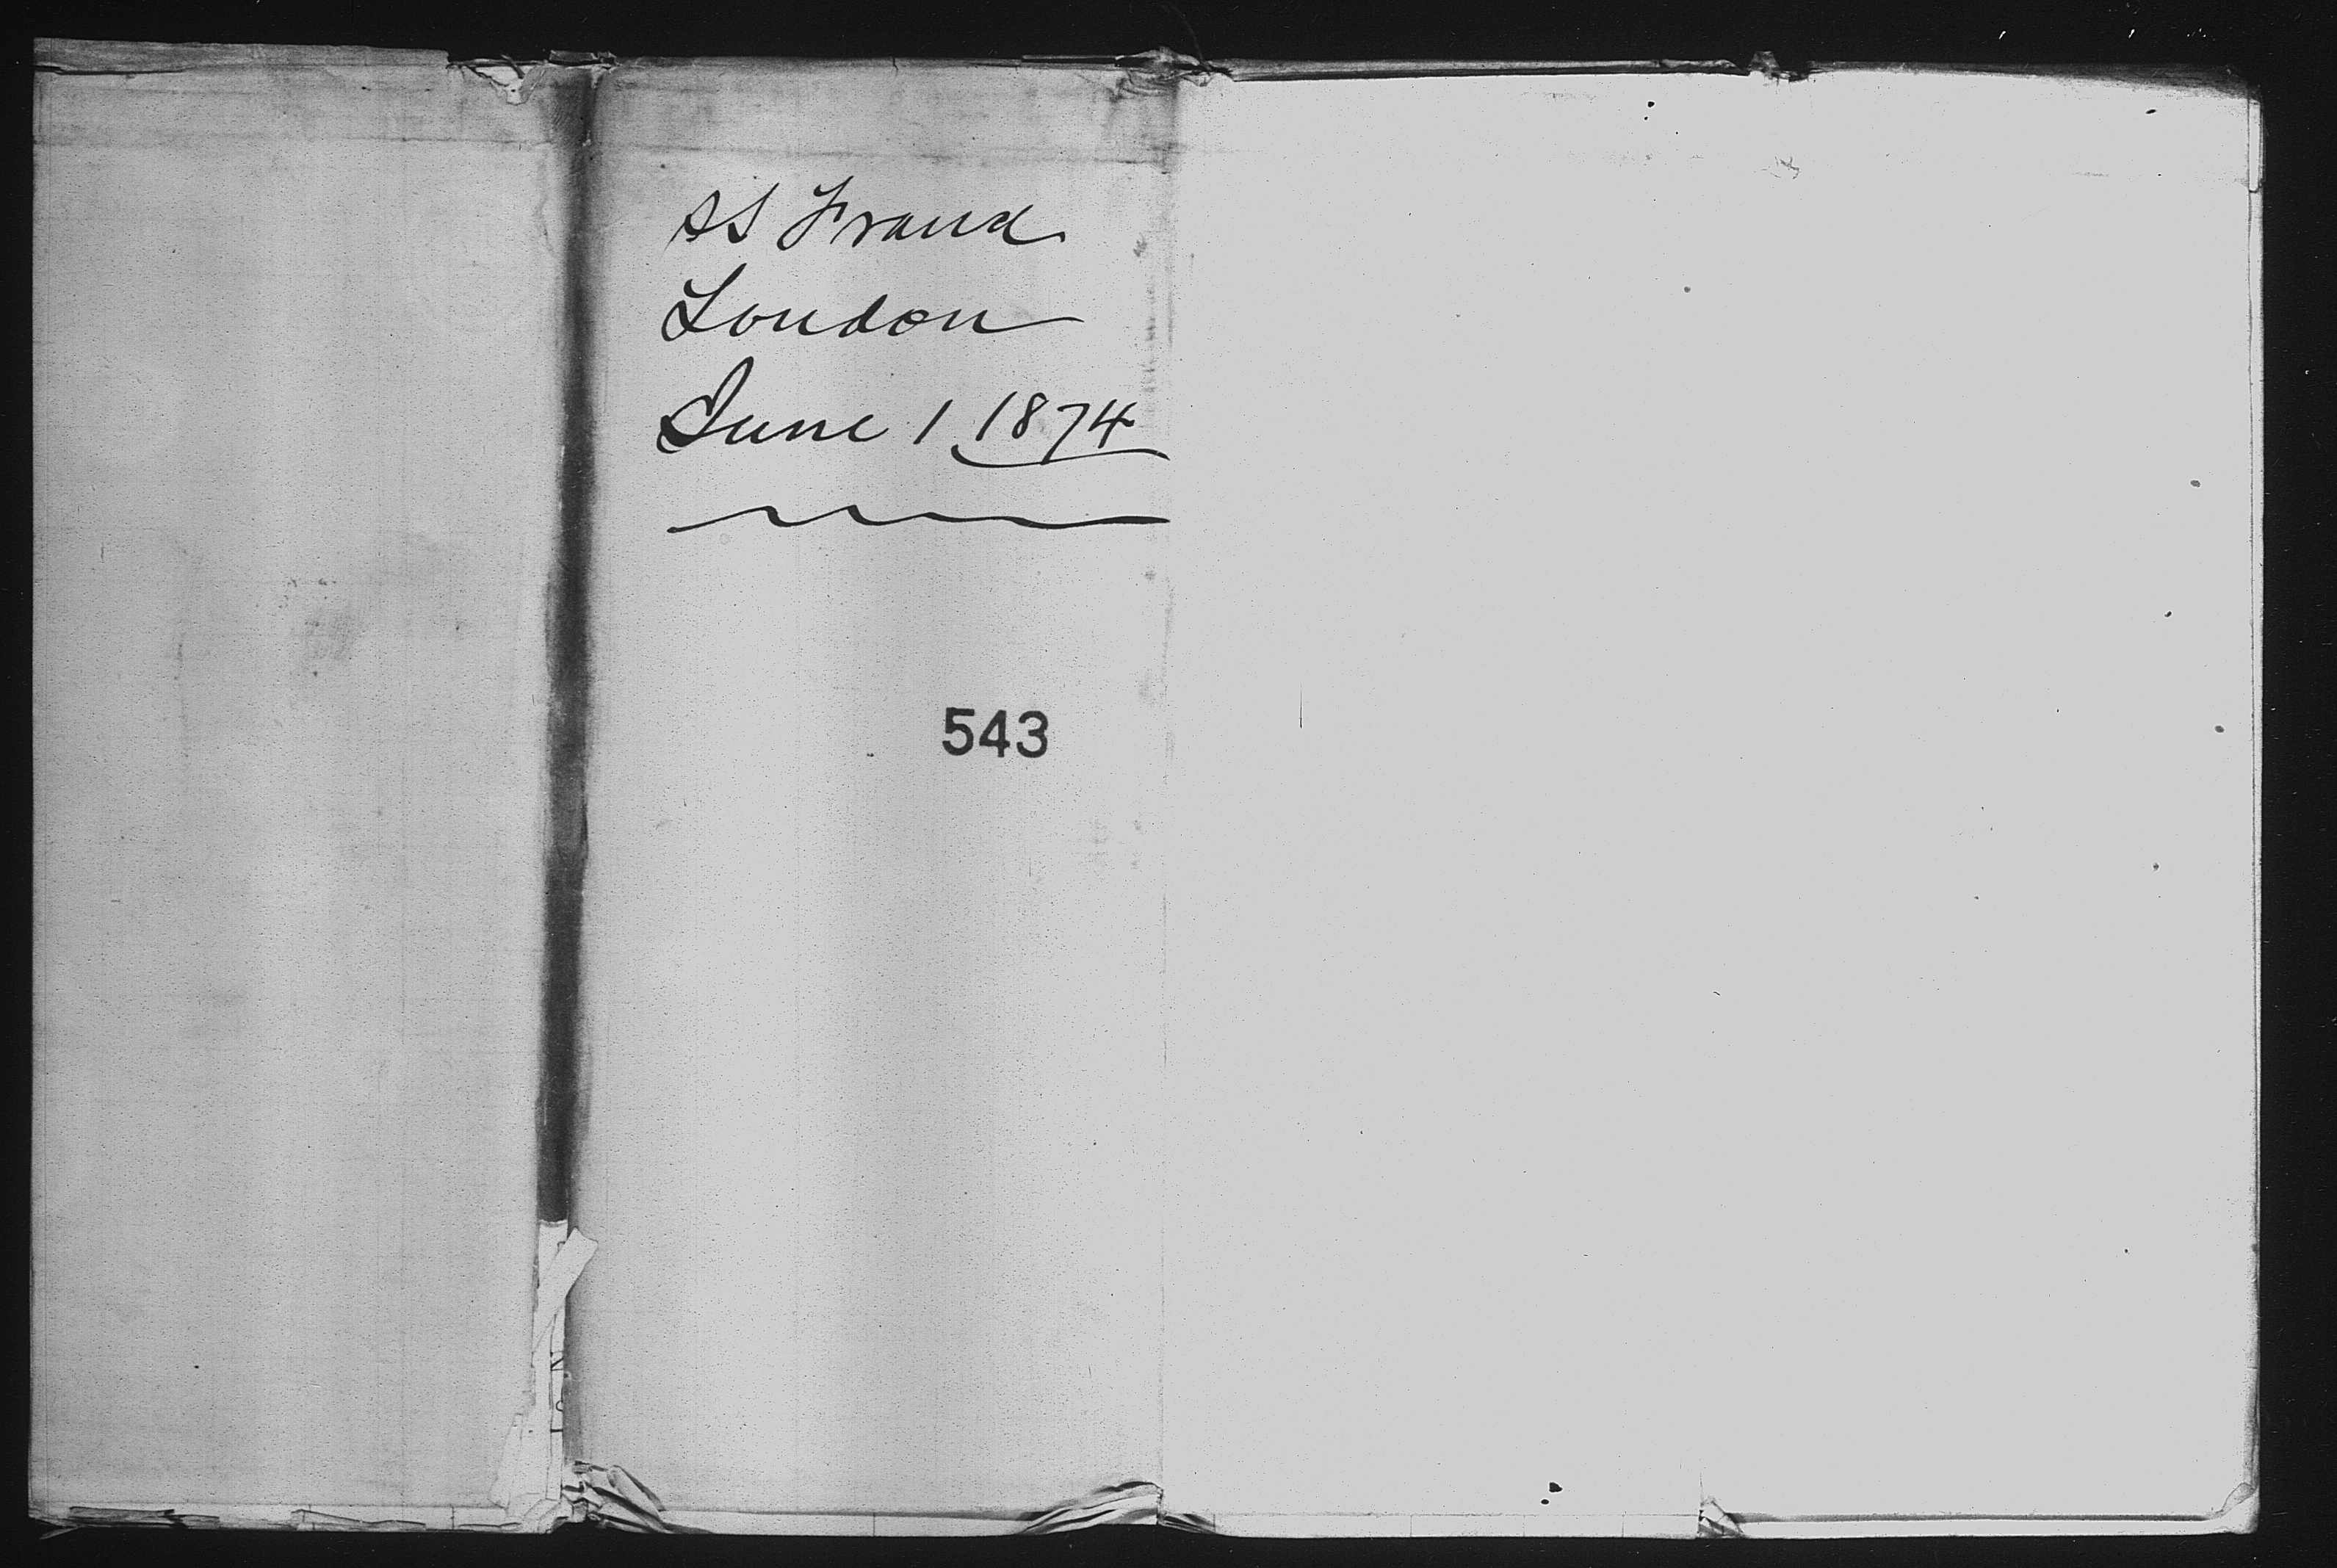 SS Frank
London
June 1 1874
543